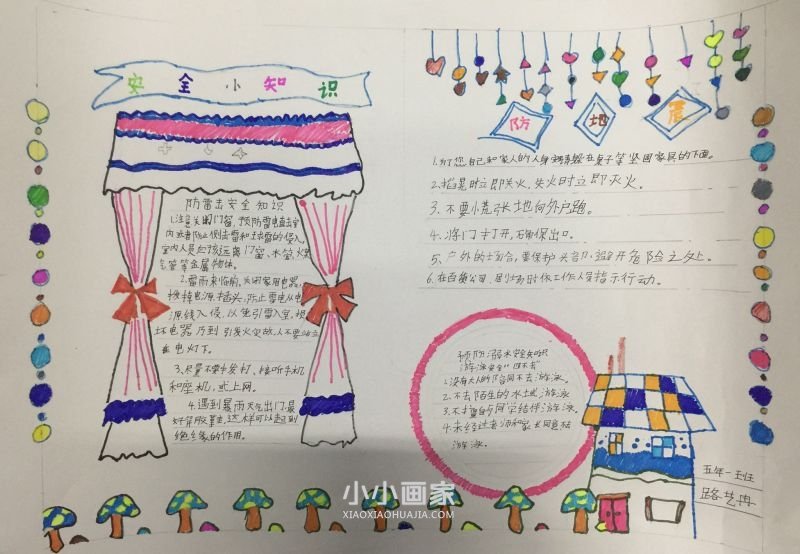 安全小知识
防雷击安全知识
1.注意关闭门窗,预防雷电直击室
内或者防止侧击雷和球雷的侵入,
室内人员应该远离门窗、水管、煤
气管等金属物体。
2.雷雨来临前,关闭家用电器,
拔掉电源插头,防止雷电从电
源线入侵,
坏电器乃到引发火灾故,人不要站立
在电灯下。
3.尽量不要接听手机
和座机,或上网。
4.遇到暴雨天气出门最
好穿胶鞋,这样可以起到
绝缘的作用。
防地震
1.为了您自己和家人的人身在桌子等坚固家具的下面。
2.摇晃时立即关火,失火时立即灭火。
3.不要慌张地向外户跑。
4.将门打开,确保出口。
5.户外的场合,要保护头部,避开危险之处。
6.在百货公司、剧场时依工作人员指示行动。
预防溺水安全知识
游泳安全"四不去"
1.没有大人的陪同不去游泳。
2.不去陌生的水域游泳
3.不去擅自与同学结伴游泳。
4.未经过老师和家长同意去
游泳。
五年一班
小小画家
XIAOXIAOHUAJIA.COM